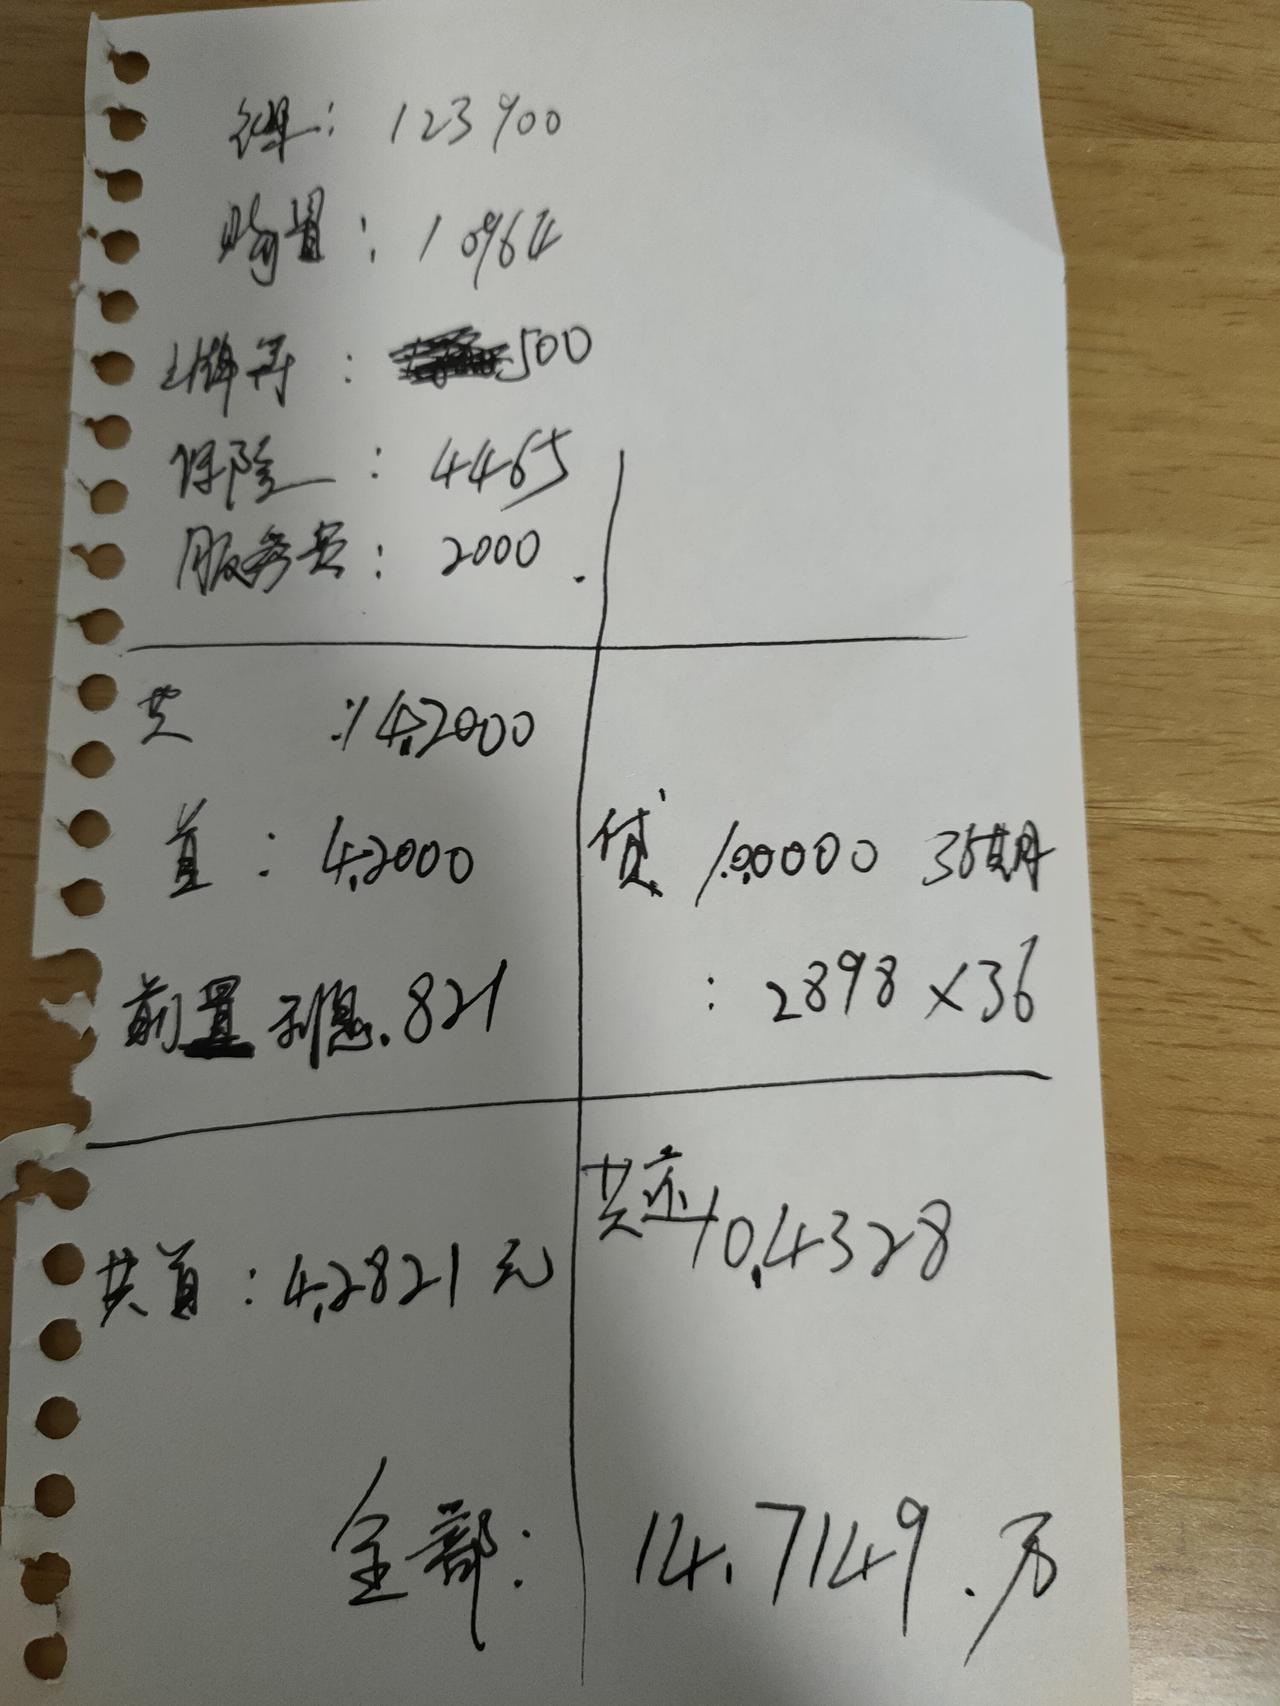 裸车: 123900
购置: 10964
上牌等: 500
保险: 4465
服务费: 2000.
共: 14.2000
首: 4.2000
贷 10.0000 36期
前置利息.821
: 2898×36
共首: 4.2821元
共还 10.4328
全部: 14.7149.万